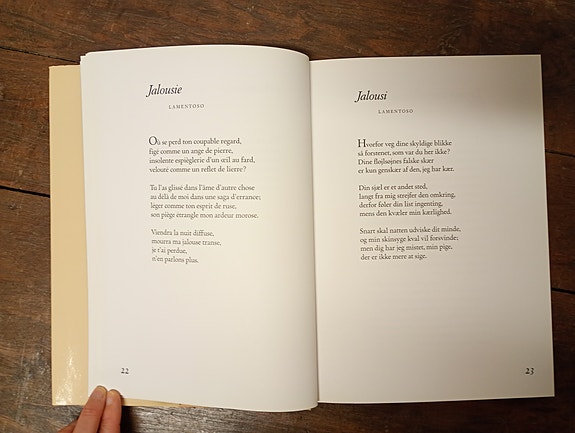 Jalousie
LAMENTOSO
Où se perd ton coupable regard,
figé comme un ange de pierre,
insolente espièglerie d'un œil au fard,
velouté comme un reflet de lierre?
Tu l'as glissé dans l'âme d'autre chose
au délà de moi dans une saga d'errance;
leger comme ton esprit de ruse,
son piège étrangle mon ardeur morose.
Viendra la nuit diffuse,
mourra ma jalouse transe,
je t'ai perdue,
n'en parlons plus.
22
Jalousi
LAMENTOSO
Hvorfor veg dine skyldige blikke
så forstenet, som var du her ikke?
Dine fløjlsøjnes falske skær
er kun genskær af den, jeg har kær.
Din sjæl er et andet sted,
langt fra mig strejfer den omkring,
derfor føler din list ingenting,
mens den kvæler min kærlighed.
Snart skal natten udviske dit minde,
og min skinsyge kval vil forsvinde;
men dig har jeg mistet, min pige,
der er ikke mere at sige.
23